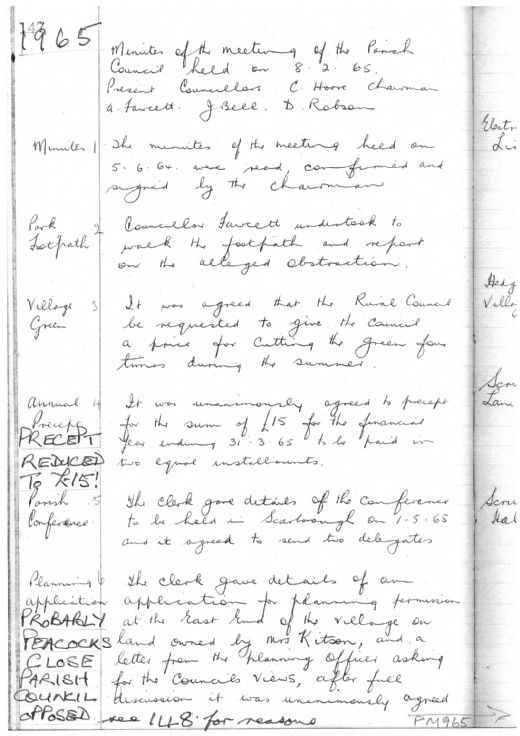 147
1965
Minutes of the meeting of the Parish
Council held on 8.2.65.
Present Councillors C. Hoore Chairman
A. Fawcett. J Bell. D. Robson
Minutes 1 The minutes of the meeting held on
5.6.64. were read, confirmed and
signed by the chairman
Park 2 Councillor Fawcett undertook to
Footpath walk the footpath and report
on the alleged obstruction.
Village 3 It was agreed that the Rural Council
Green be requested to give the council
a price for cutting the green four
times during the summer.
Annual 4 It was unanimously agreed to precept
Precept for the sum of £15 for the financial
PRECEPT year ending 31.3.65 to be paid in
REDUCED two equal installments.
To £15!
Parish 5 The clerk gave details of the Conference
Conference to be held in Scarborough on 1.5.65
and it agreed to send two delegates
Planning 6 The clerk gave details of an
application application for planning permission
PROBABLY at the East End of the village on
PEACOCKS land owned by Mrs Kitson, and a
CLOSE letter from the planning officer asking
PARISH for the Councils views, after full
COUNCIL discussion it was unanimously agreed
OPPOSED see 148 for reasons
PM965
Electr
Li
Hedg
Villag
Lane